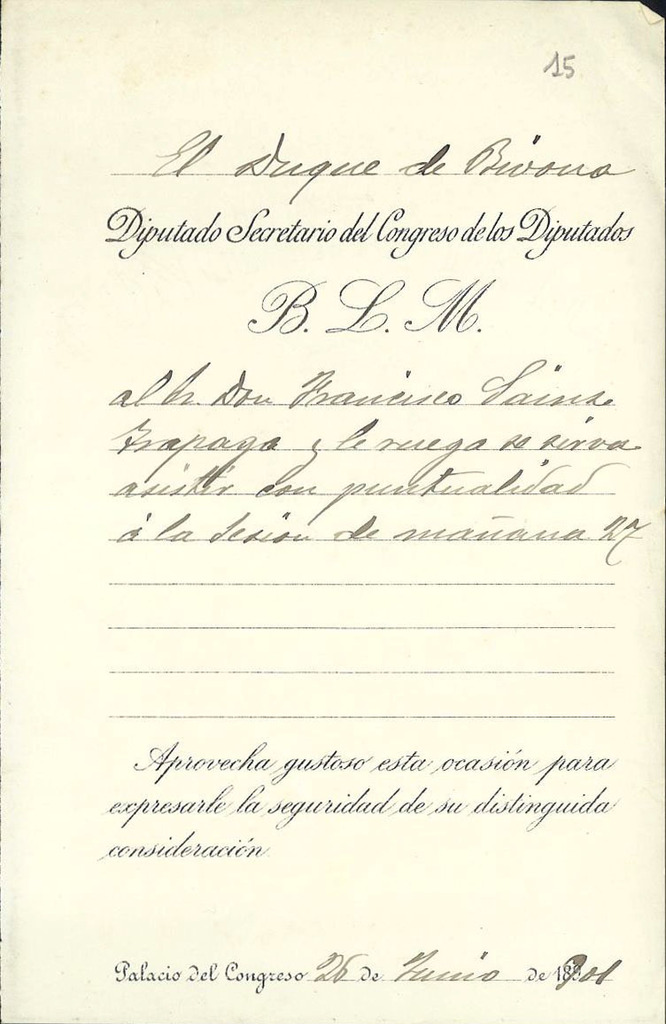 15
El Duque de Bivona
Diputado Secretario del Congreso de los Diputados
B. L. M.
al Sr. Don Francisco Sainz
Trapaga y le ruega se sirva
asistir con puntualidad
á la sesion de mañana 27
Aprovecha gustoso esta ocasión para
expresarle la seguridad de su distinguida
consideración.
Palacio del Congreso 26 de Junio de 1901